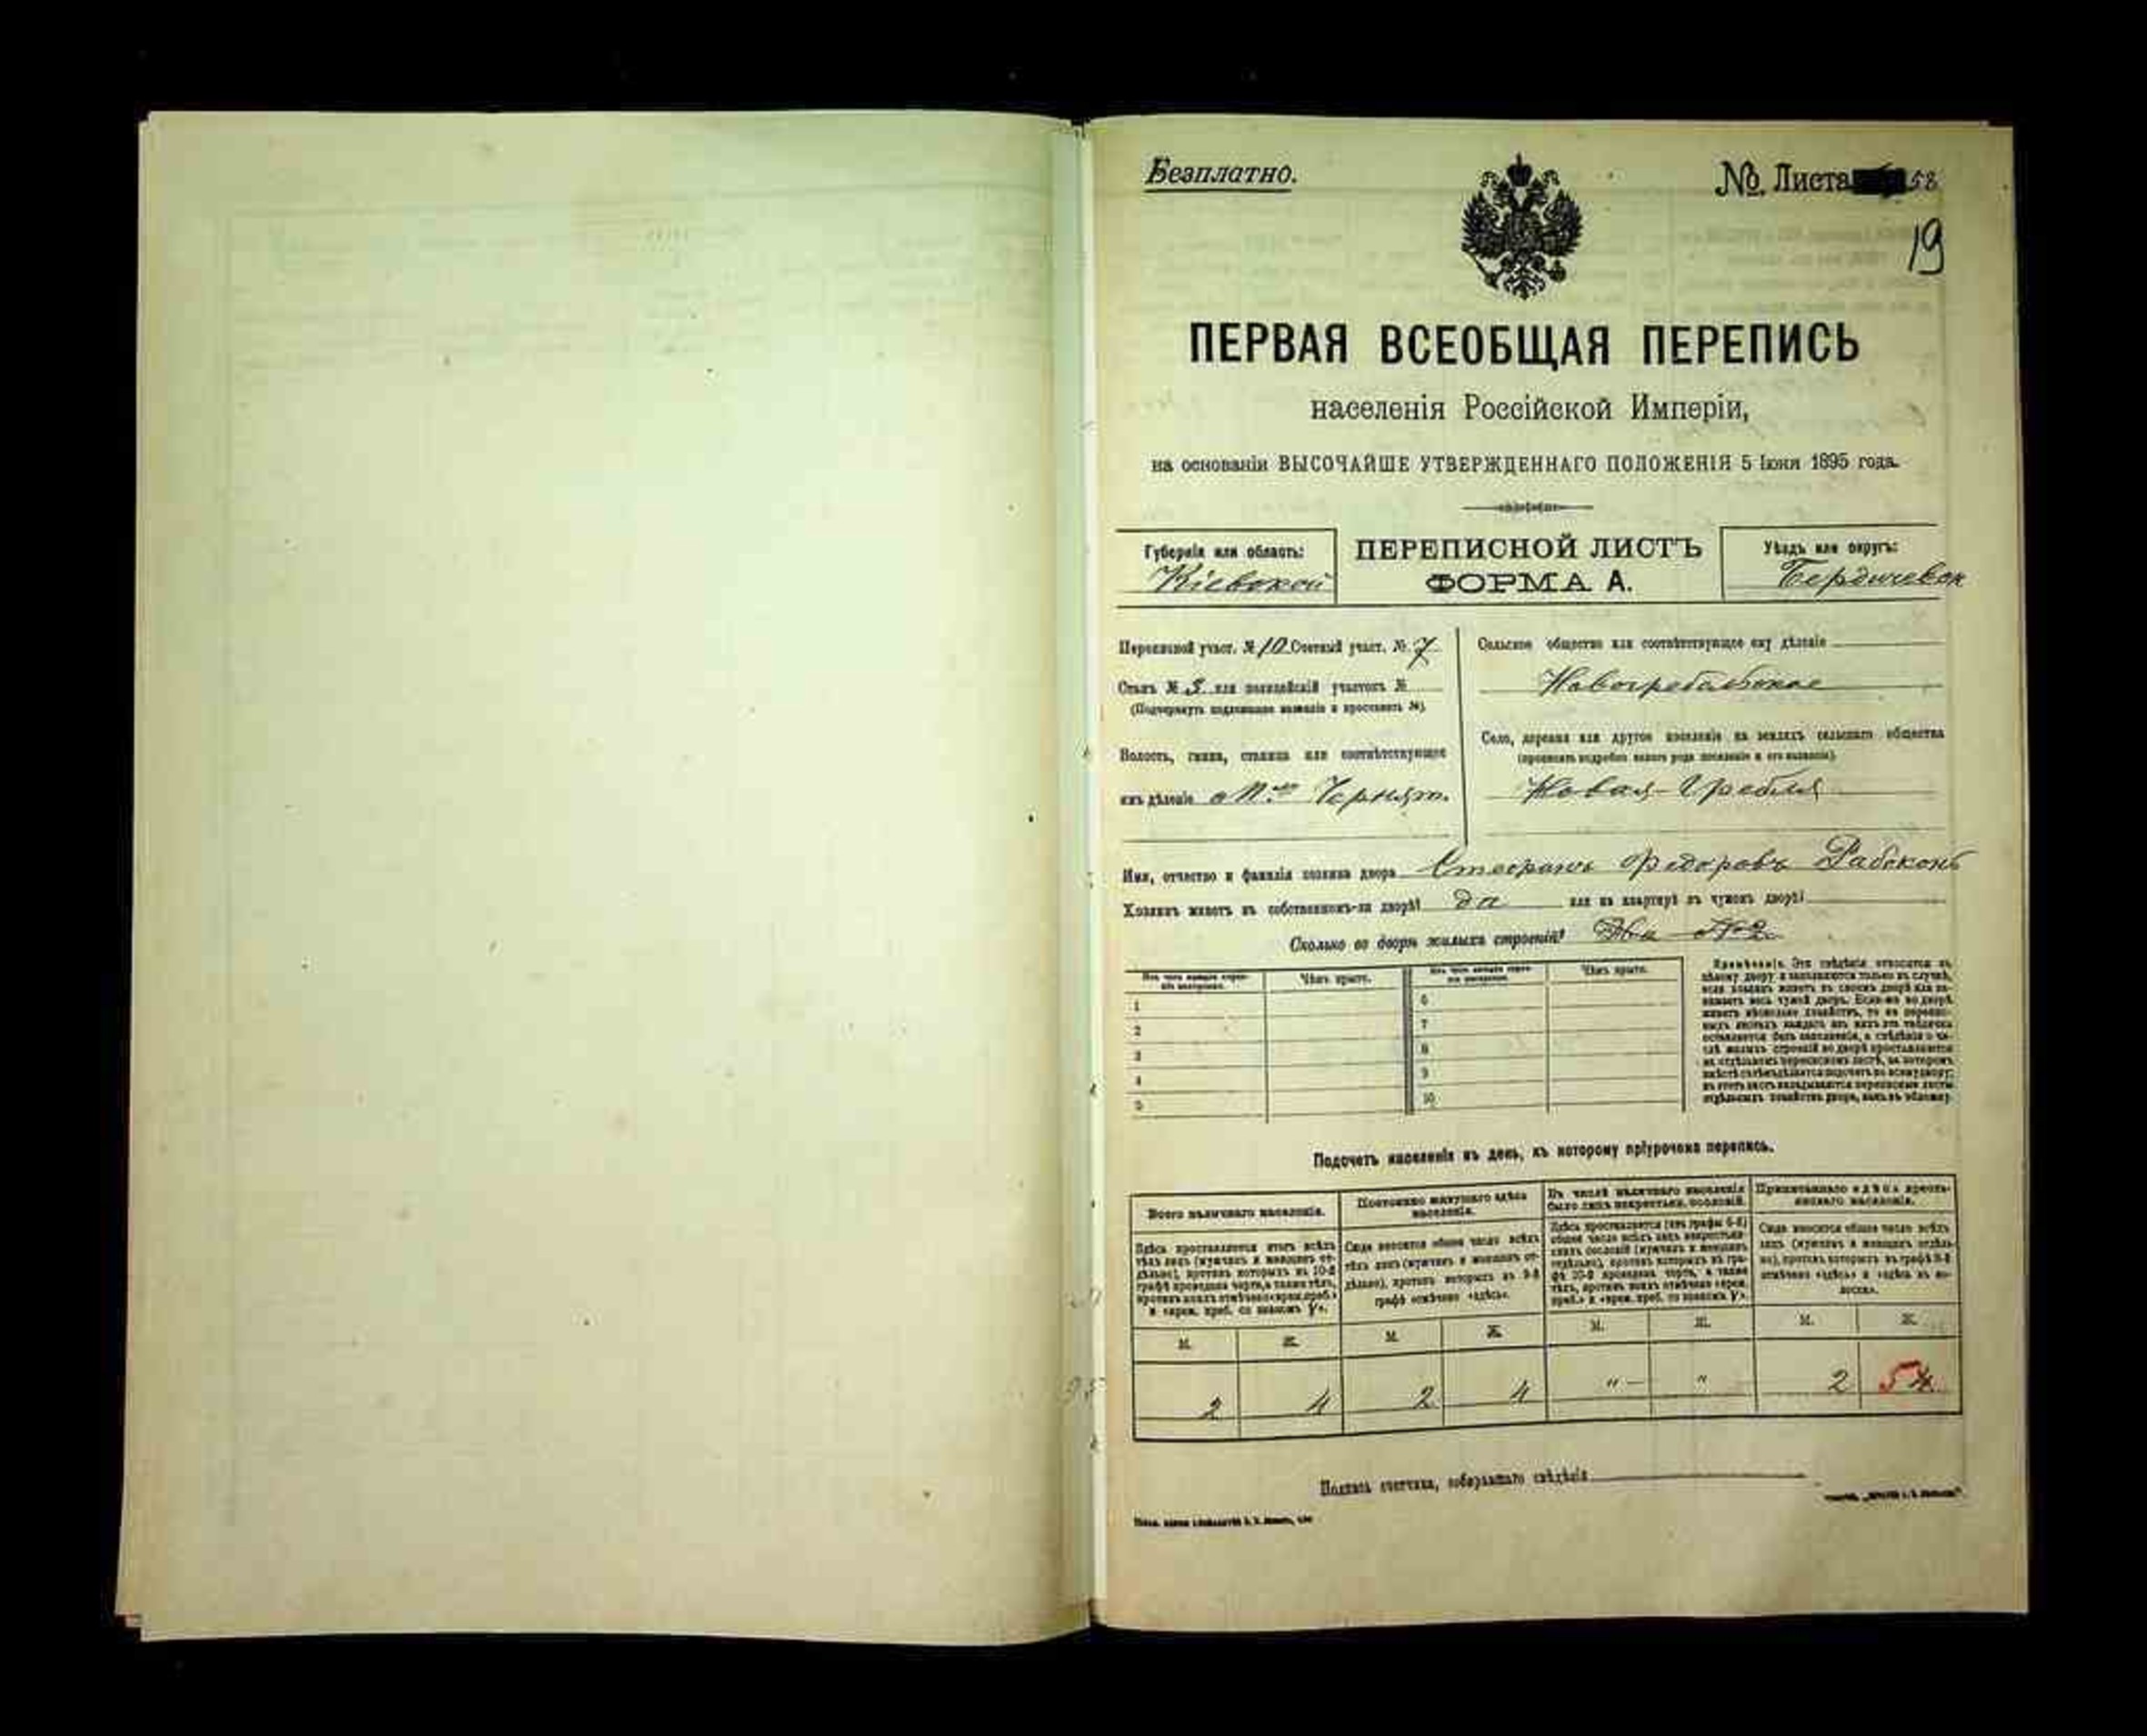 Безплатно.
№. Листа 58
19
ПЕРВАЯ ВСЕОБЩАЯ ПЕРЕПИСЬ
населенія Россійской Имперіи,
на основаніи ВЫСОЧАЙШЕ УТВЕРЖДЕННАГО ПОЛОЖЕНІЯ 5 Іюня 1895 года.
Губернія или область:
Кіевской
ПЕРЕПИСНОЙ ЛИСТЪ
ФОРМА А.
Уѣздъ или округъ:
Бердичевск
Переписной участ. № 10 Счетный участ. № 7
Станъ № 3 или полицейскій участокъ №
(Подчеркнуть подлежащее названіе и проставить №).
Волость, гмина, станица или соотвѣтствующее
имъ дѣленіе Чернят.
Сельское общество или соотвѣтствующее ему дѣленіе
Новогребельское
Село, деревня или другое поселеніе на земляхъ сельскаго общества
(прописать подробно какого рода поселеніе и его названіе).
Новая-Гребля
Имя, отчество и фамилія хозяина двора Стефанъ Федоровъ Рабоконь
Хозяинъ живетъ въ собственномъ-ли дворѣ? да или на квартирѣ въ чужомъ дворѣ?
Сколько во дворѣ жилыхъ строеній? Два №2
Чѣмъ крыто.
Чѣмъ крыто.
1
2
3
4
5
6
7
8
9
10
Примѣчаніе. Эти свѣдѣнія относятся къ
цѣлому двору и заполняются только въ случаѣ,
если хозяинъ живетъ въ своемъ дворѣ или за-
нимаетъ весь чужой дворъ. Если-же во дворѣ
живетъ нѣсколько хозяйствъ, то на перепис-
ныхъ листахъ каждаго изъ нихъ эта табличка
оставляется безъ заполненія, а свѣдѣнія о чи-
слѣ жилыхъ строеній во дворѣ проставляются
на отдѣльномъ переписномъ листѣ, на которомъ
вмѣстѣ съ тѣмъ дѣлается подсчетъ по всему двору;
въ этотъ листъ вкладываются переписные листы
отдѣльныхъ хозяйствъ двора, какъ въ обложку.
Подсчетъ населенія въ день, къ которому пріурочена перепись.
Всего наличнаго населенія.
Постоянно живущаго здѣсь
населенія.
Въ числѣ наличнаго населенія
было лицъ некрестьян. сословій.
Приписаннаго здѣсь кресть-
янскаго населенія.
Здѣсь проставляется итогъ всѣхъ
тѣхъ лицъ (мужчинъ и женщинъ от-
дѣльно), противъ которыхъ въ 10-й
графѣ проведена черта, а также тѣхъ,
противъ коихъ отмѣчено «врем. преб.»
и «врем. преб. со знакомъ V».
Сюда вносится общее число всѣхъ
тѣхъ лицъ (мужчинъ и женщинъ от-
дѣльно), противъ которыхъ въ 9-й
графѣ отмѣчено «здѣсь».
Здѣсь проставляется (изъ графы 6-й)
общее число всѣхъ лицъ некрестьян-
скихъ сословій (мужчинъ и женщинъ
отдѣльно), противъ которыхъ въ гра-
фѣ 10-й проведена черта, а также
тѣхъ, противъ коихъ отмѣчено «врем.
преб.» и «врем. преб. со знакомъ V».
Сюда вносится общее число всѣхъ
лицъ (мужчинъ и женщинъ отдѣль-
но), противъ которыхъ въ графѣ 8-й
отмѣчено «здѣсь» и «здѣсь въ во-
лости».
М. Ж. М. Ж. М. Ж. М. Ж.
2 4 2 4 " — " 2 5 4
Подпись счетчика, собиравшаго свѣдѣнія